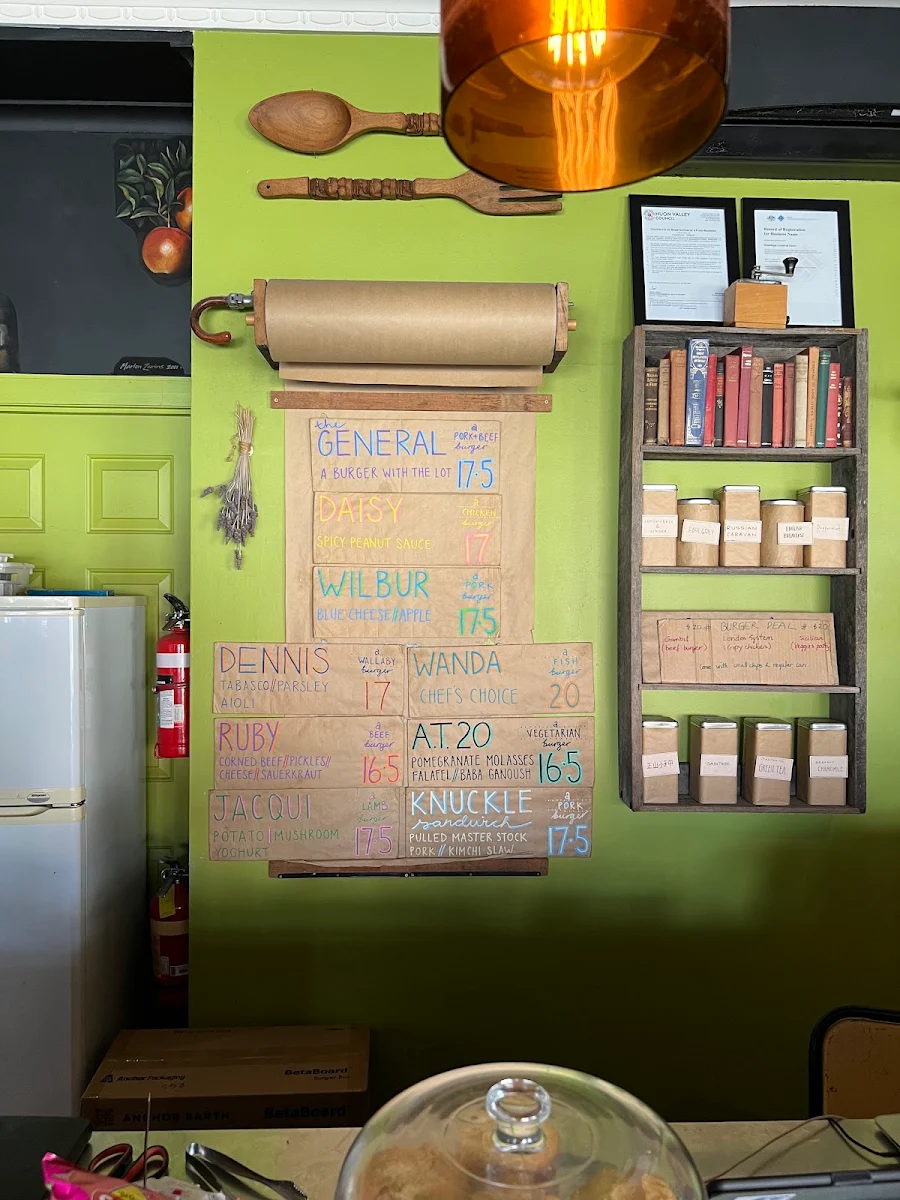 HUON VALLEY
COUNCIL
Record of Registration
for Business Name
Marten Zwiers 2011
the
GENERAL
a
PORK+BEEF
burger
A BURGER WITH THE LOT
17.5
DAISY
a
CHICKEN
burger
SPICY PEANUT SAUCE
17
WILBUR
a
PORK
burger
BLUE CHEESE//APPLE
17.5
DENNIS
a
WALLABY
burger
TABASCO//PARSLEY
AIOLI
17
WANDA
a
FISH
burger
CHEFS CHOICE
20
RUBY
a
BEEF
burger
CORNED BEEF//PICKLES//
CHEESE//SAUERKRAUT
16.5
A.T. 20
a
VEGETARIAN
burger
POMEGRANATE MOLASSES
FALAFEL//BABA GANOUSH
16.5
JACQUI
a
LAMB
burger
POTATO | MUSHROOM
YOGHURT
17.5
KNUCKLE
sandwich
a
PORK
burger
PULLED MASTER STOCK
PORK // KIMCHI SLAW
17.5
RUSSIAN
CARAVAN
ENGLISH
BREAKFAST
BURGER DEAL
$20
Gambit
(beef burger)
London System
(crispy chicken)
Sicilian
come with small chips & regular can
正山小种
GREEN TEA
CHAMOMILE
Anchor Packaging
BetaBoard
ANCHOR EARTH
BetaBoard